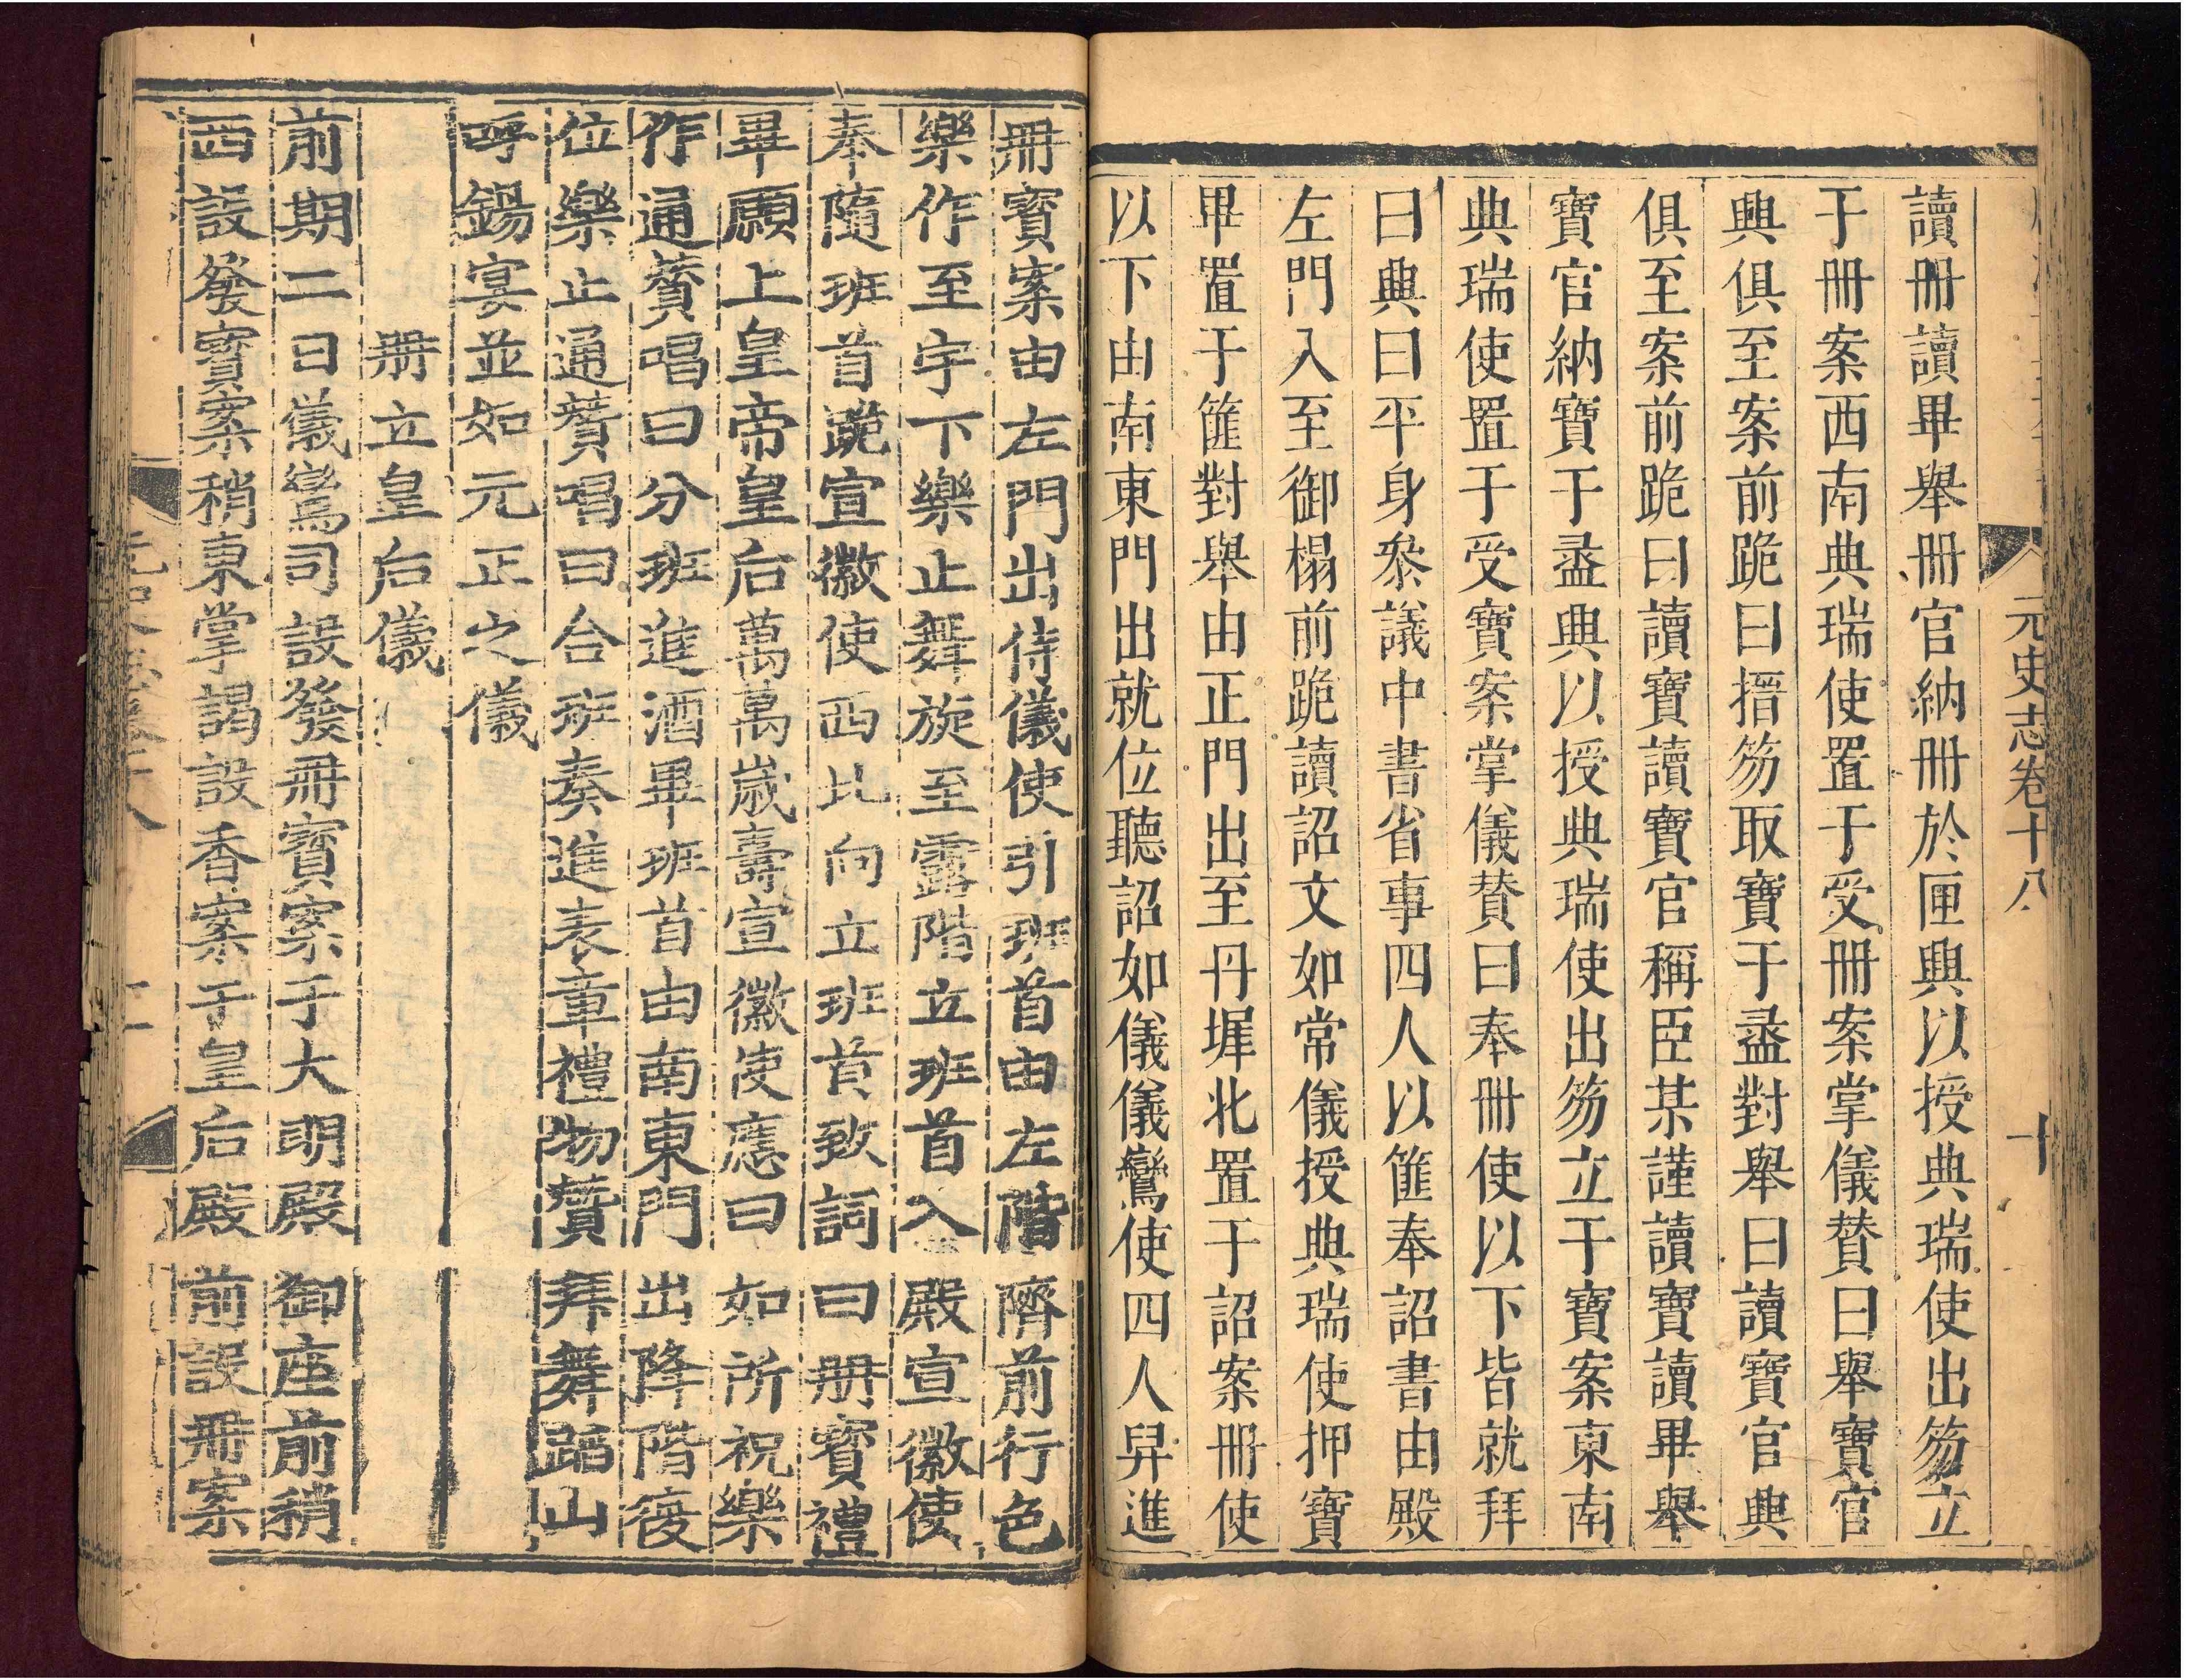 元史志卷十八
十
讀冊讀畢舉冊官納冊於匣興以授典瑞使出笏立
于冊案西南典瑞使置于受冊案掌儀贊曰舉寶官
興俱至案前跪曰搢笏取寶于盝對舉曰讀寶官興
俱至案前跪曰讀寶讀寶官稱臣某謹讀寶讀畢舉
寶官納寶于盝興以授典瑞使出笏立于寶案東南
典瑞使置于受寶案掌儀贊曰奉冊使以下皆就拜
曰興曰平身叅議中書省事四人以篚奉詔書由殿
左門入至御榻前跪讀詔文如常儀授典瑞使押寶
畢置于篚對舉由正門出至丹墀北置于詔案冊使
以下由南東門出就位聽詔如儀儀鸞使四人舁進
冊寳案由左門出侍儀使引班首由左階隮前行色
樂作至宇下樂止舞旋至露階立班首入殿宣徽使
奉隨班首跪宣徽使西北向立班首致詞曰冊寳禮
畢願上皇帝皇后萬萬歲壽宣徽使應曰如所祝樂
作通贊唱曰分班進酒畢班首由南東門出降階復
位樂止通贊唱曰合班奏進表章禮物贊拜舞蹈山
呼錫宴並如元正之儀
冊立皇后儀
前期二日儀鸞司設發冊寳案于大明殿御座前稍
西設發寳案稍東掌謁設香案于皇后殿前設冊案